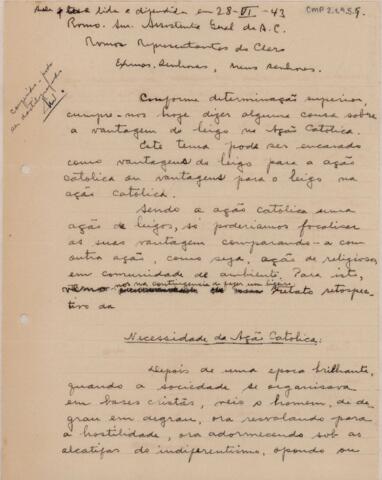 lida e defendida em 28-VI-43
CMP 2.1.9.5
Revmo. Snr. Assistente Geral da A.C.
Revmos Representantes do Clero
Exmas. Senhoras, Meus Senhores.
Conforme determinação superior,
cumpre-nos hoje dizer alguma cousa sobre
a vantagem do leigo na Ação Católica.
Este tema pode ser encarado
como vantagens do leigo para a ação
católica ou vantagens para o leigo na
ação católica.
Sendo a ação católica uma
ação de leigos, só poderiamos focalisar
as suas vantagem comparando-a com
outra ação, como seja, ação de religiosos,
em comunidade de ambiente. Para isto,
nos na contingencia de fazer um ligeiro
vemo relato retrospe-
tivo da
Necessidade da Ação Católica:
Depois de uma epoca brilhante,
quando a sociedade se organisava
em bases cristãs, veio o homem, de de-
grau em degrau, ora resvalando para
a hostilidade, ora adormecendo sob as
alcatifas do indiferentismo, opondo ou